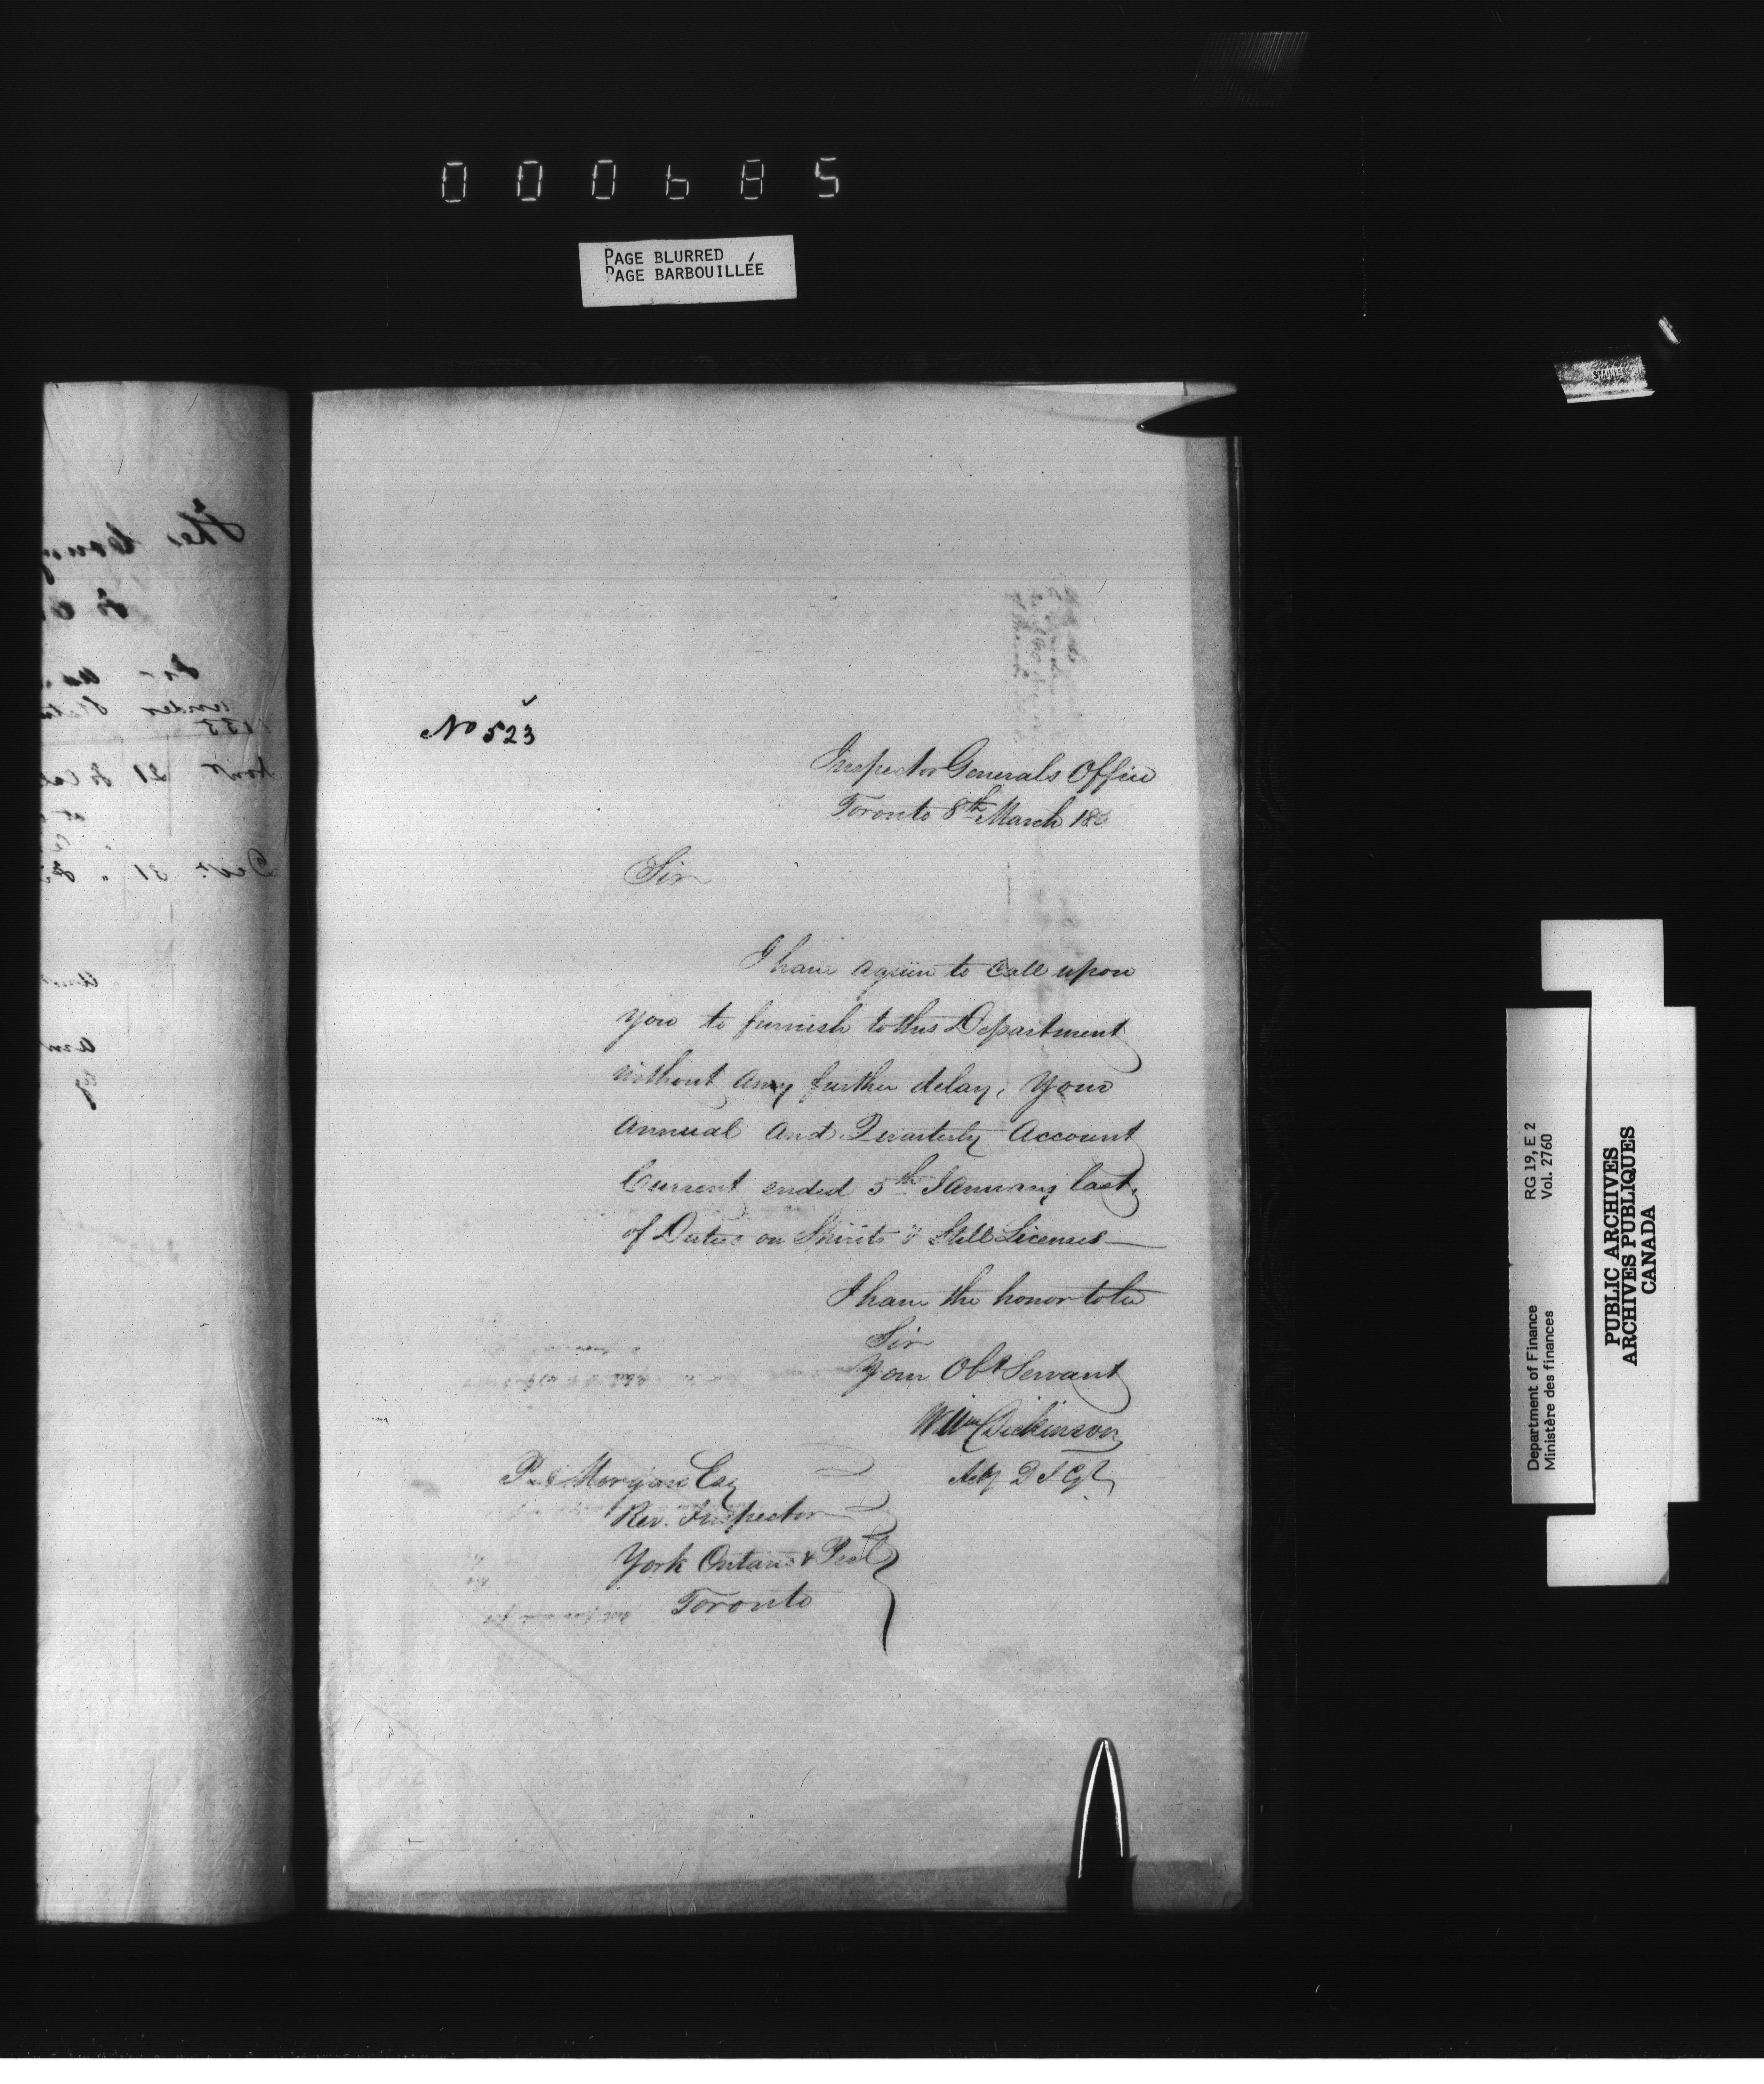 000685
PAGE BLURRED
PAGE BARBOUILLÉE
No 523
Inspector Generals Office
Toronto 8th March 18
Sir
I have again to call upon
you to furnish to this Department
without any further delay, your
Annual and Quarterly Account
Current ended 5th January last,
of Duties on Spirits & Still Licenses
I have the honor to be
Sir
Your Obt Servant
Willm Dickinson
Actg D I Gl
P. Morgan Esq
Rev. Inspector
York Ontario & Peel
Toronto
Department of Finance RG 19, E 2
Ministère des finances Vol. 2760
PUBLIC ARCHIVES
ARCHIVES PUBLIQUES
CANADA